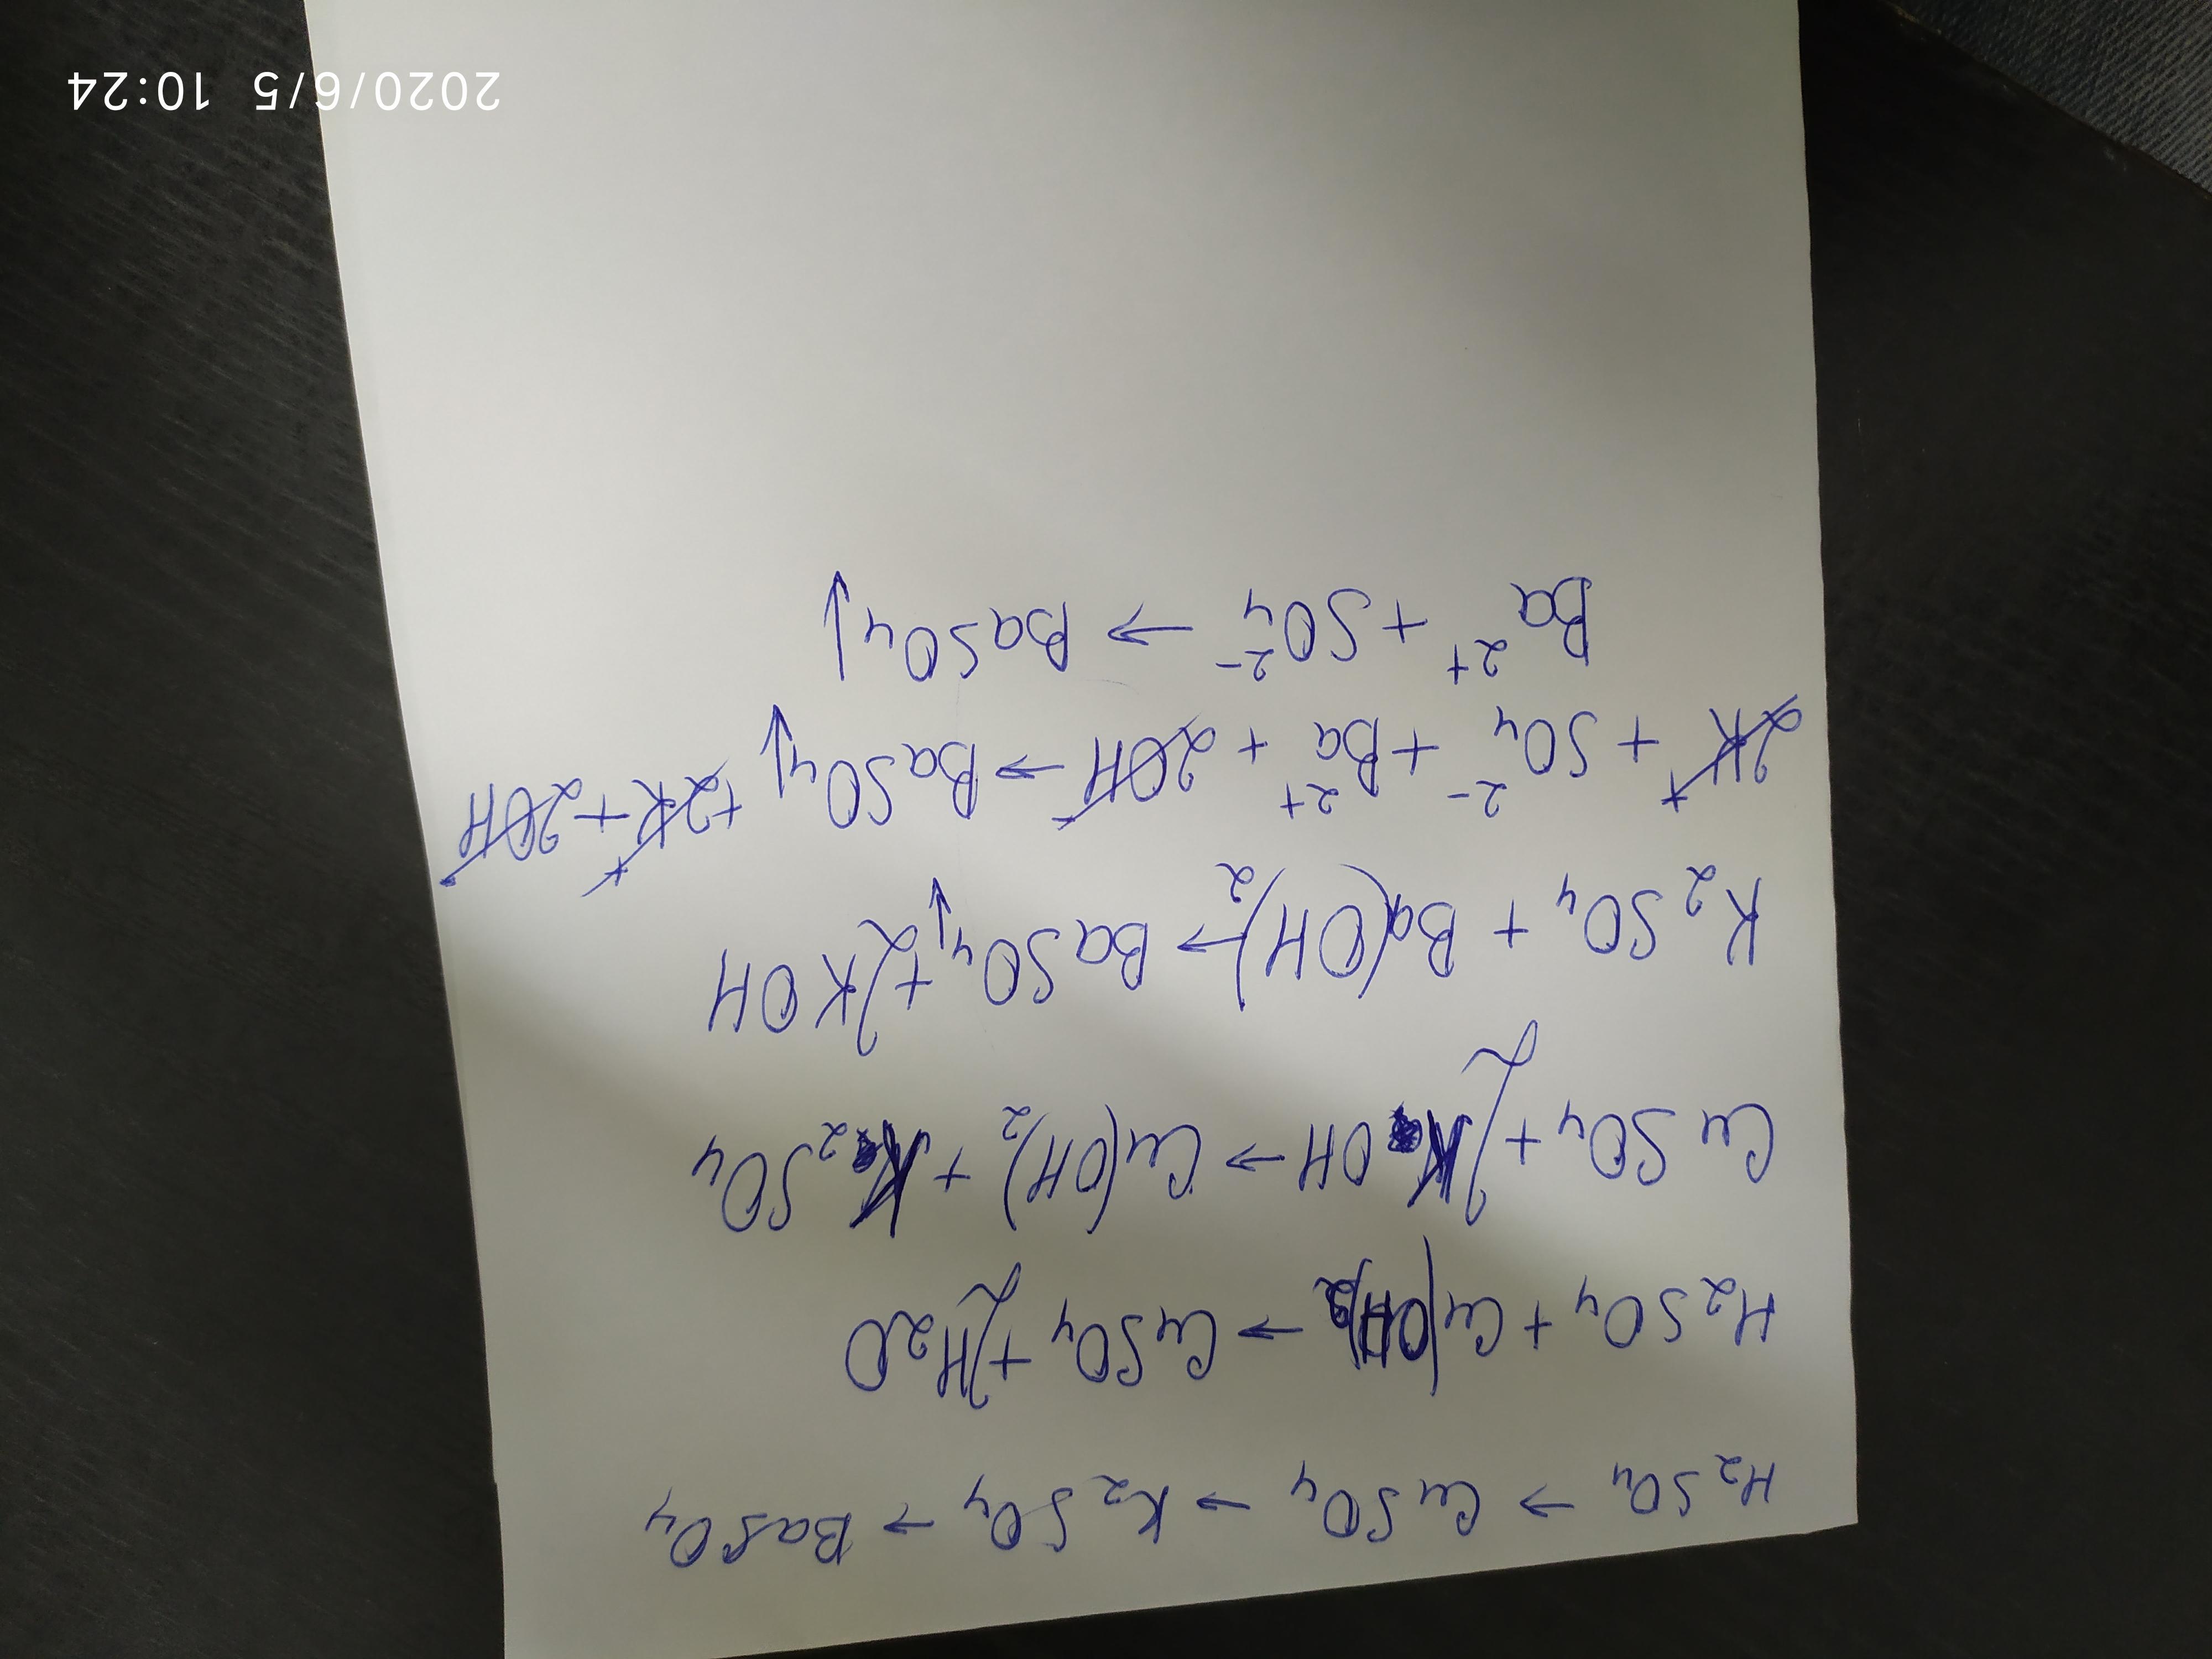 H₂SO₄ → CuSO₄ → K₂SO₄ → BaSO₄
H₂SO₄ + Cu(OH)₂ → CuSO₄ + 2H₂O
CuSO₄ + 2KOH → Cu(OH)₂ + K₂SO₄
K₂SO₄ + Ba(OH)₂ → BaSO₄↓ + 2KOH
2K⁺ + SO₄²⁻ + Ba²⁺ + 2OH⁻ → BaSO₄↓ + 2K⁺ + 2OH⁻
Ba²⁺ + SO₄²⁻ → BaSO₄↓
2020/6/5 10:24